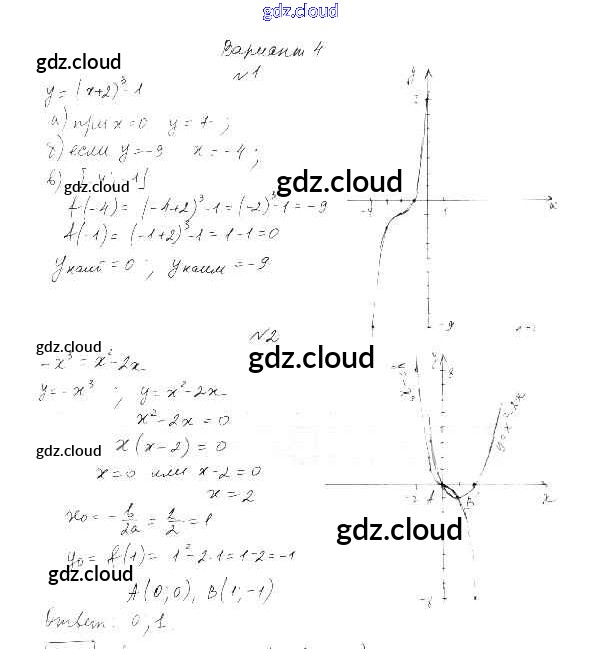 gdz.cloud
Вариант 4
gdz.cloud
№1
y = (x+2)³-1
а) при x=0 y=7;
б) если y=-9 x=-4;
gdz.cloud
f(-4) = (-4+2)³-1 = (-2)³-1 = -9
f(-1) = (-1+2)³-1 = 1-1=0
yнаиб = 0; yнаим = -9
y
-4
1
x
-9
№2
gdz.cloud
gdz.cloud
-x³ = x²-2x
y=-x³; y = x²-2x
x²-2x = 0
gdz.cloud
x(x-2) = 0
x=0 или x-2=0
x=2
x₀ = -b/2a = 2/2 = 1
y₀ = f(1) = 1²-2·1=1-2=-1
gdz.cloud
A(0;0), B(1;-1)
Ответ: 0, 1.
y
8
y=x²-2x
-2
A
B
x
gdz.cloud
-8